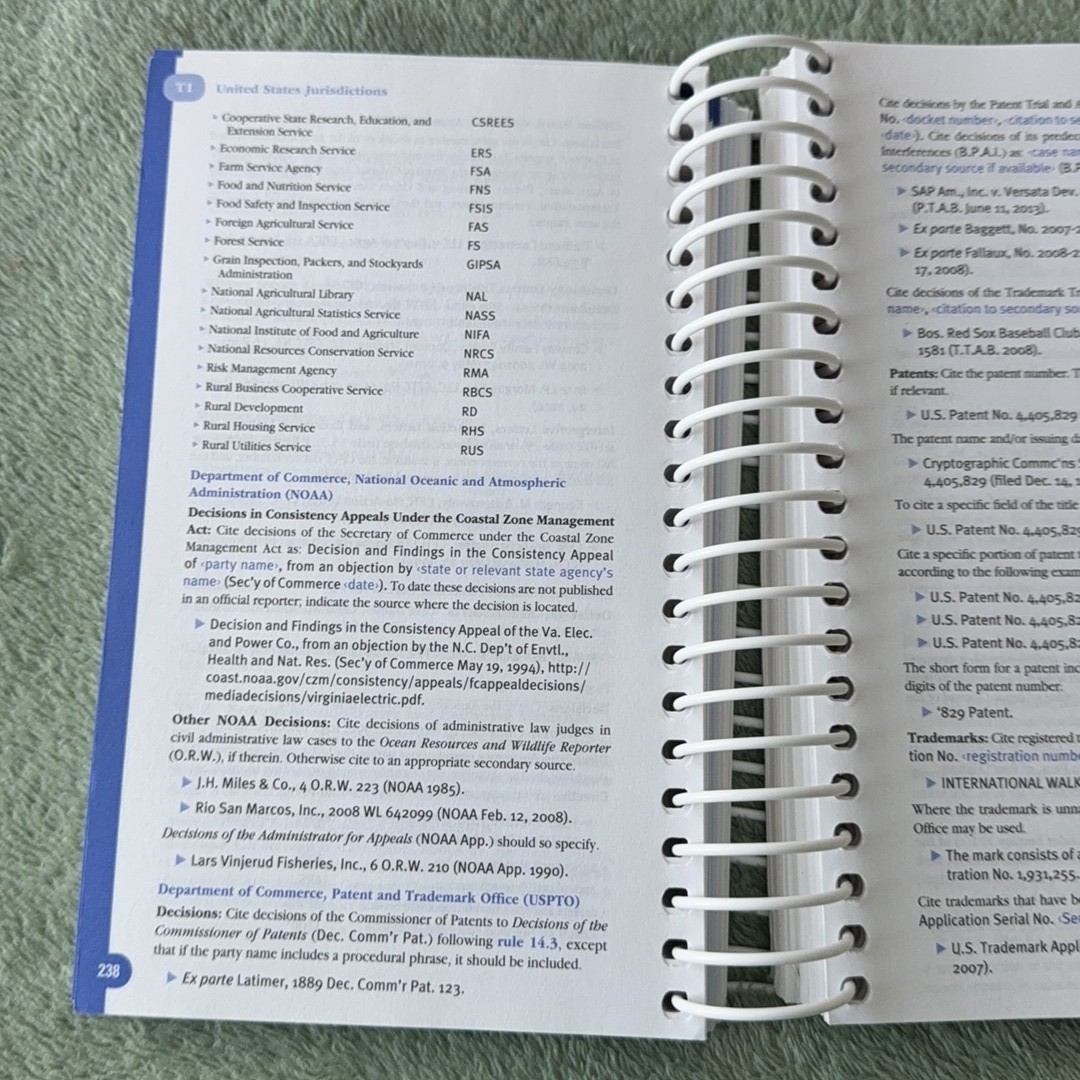 T1 United States Jurisdictions
▸ Cooperative State Research, Education, and CSREES
Extension Service
▸ Economic Research Service ERS
▸ Farm Service Agency FSA
▸ Food and Nutrition Service FNS
▸ Food Safety and Inspection Service FSIS
▸ Foreign Agricultural Service FAS
▸ Forest Service FS
▸ Grain Inspection, Packers, and Stockyards GIPSA
Administration
▸ National Agricultural Library NAL
▸ National Agricultural Statistics Service NASS
▸ National Institute of Food and Agriculture NIFA
▸ National Resources Conservation Service NRCS
▸ Risk Management Agency RMA
▸ Rural Business Cooperative Service RBCS
▸ Rural Development RD
▸ Rural Housing Service RHS
▸ Rural Utilities Service RUS
Department of Commerce, National Oceanic and Atmospheric
Administration (NOAA)
Decisions in Consistency Appeals Under the Coastal Zone Management
Act: Cite decisions of the Secretary of Commerce under the Coastal Zone
Management Act as: Decision and Findings in the Consistency Appeal
of ‹party name›, from an objection by ‹state or relevant state agency's
name› (Sec'y of Commerce ‹date›). To date these decisions are not published
in an official reporter; indicate the source where the decision is located.
▸ Decision and Findings in the Consistency Appeal of the Va. Elec.
and Power Co., from an objection by the N.C. Dep't of Envtl.,
Health and Nat. Res. (Sec'y of Commerce May 19, 1994), http://
coast.noaa.gov/czm/consistency/appeals/fcappealdecisions/
mediadecisions/virginiaelectric.pdf.
Other NOAA Decisions: Cite decisions of administrative law judges in
civil administrative law cases to the Ocean Resources and Wildlife Reporter
(O.R.W.), if therein. Otherwise cite to an appropriate secondary source.
▸ J.H. Miles & Co., 4 O.R.W. 223 (NOAA 1985).
▸ Rio San Marcos, Inc., 2008 WL 642099 (NOAA Feb. 12, 2008).
Decisions of the Administrator for Appeals (NOAA App.) should so specify.
▸ Lars Vinjerud Fisheries, Inc., 6 O.R.W. 210 (NOAA App. 1990).
Department of Commerce, Patent and Trademark Office (USPTO)
Decisions: Cite decisions of the Commissioner of Patents to Decisions of the
Commissioner of Patents (Dec. Comm'r Pat.) following rule 14.3, except
that if the party name includes a procedural phrase, it should be included.
▸ Ex parte Latimer, 1889 Dec. Comm'r Pat. 123.
238
Cite decisions by the Patent Trial and
No. ‹docket number›, ‹citation to
‹date›). Cite decisions of its
Interferences (B.P.A.I.) as: ‹case
secondary source if available›
▸ SAP Am., Inc. v. Versata Dev.
(P.T.A.B. June 11, 2013).
▸ Ex parte Baggett, No.
▸ Ex parte Fallaux, No.
17, 2008).
Cite decisions of the Trademark
name›, ‹citation to secondary
▸ Bos. Red Sox Baseball Club
1581 (T.T.A.B. 2008).
Patents: Cite the patent number.
if relevant.
▸ U.S. Patent No. 4,405,829
The patent name and/or issuing
▸ Cryptographic Commc'ns
4,405,829 (filed Dec. 14,
To cite a specific field of the title
▸ U.S. Patent No.
Cite a specific portion of patent
according to the following
▸ U.S. Patent No.
▸ U.S. Patent No.
▸ U.S. Patent No.
The short form for a patent
digits of the patent number:
▸ '829 Patent.
Trademarks: Cite registered
tion No. ‹registration
▸ INTERNATIONAL
Where the trademark is
Office may be used.
▸ The mark consists of
tration No. 1,931,255.
Cite trademarks that have
Application Serial No.
▸ U.S. Trademark
2007).